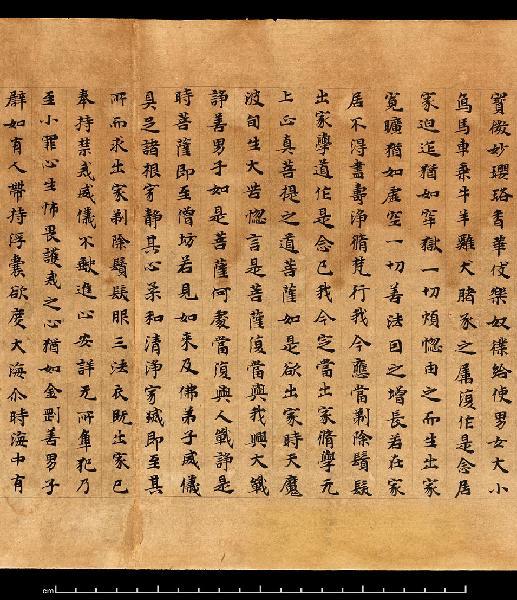 寳微妙璎珞香華伎樂奴㒒給使男女大小
烏馬車乗牛羊雞犬賭豕之屬復作是念居
家迫迮猶如牢獄一切煩惚由之而生出家
寛曠猶如虚空一切善法因之增長若在家
居不得盡壽浄脩梵行我今應當剃除鬚髮
出家學道作是念已我今定當出家脩學无
上正真菩提之道菩薩如是欲出家時天魔
波旬生大苦惚言是菩薩復當與我興大戰
諍善男子如是菩薩何處當復與人戰諍是
時菩薩即至僧坊若見如來及佛弟子威儀
具足諸根寂静其心柔和清浄寂滅即至其
所而求出家剃除鬚髮服三法衣既出家已
奉持禁戒威儀不𡙇進心安詳无所𨿽犯乃
至小罪心生怖畏護戒之心猶如金剛善男子
辟如有人帶持浮囊欲度大海尒時海中有